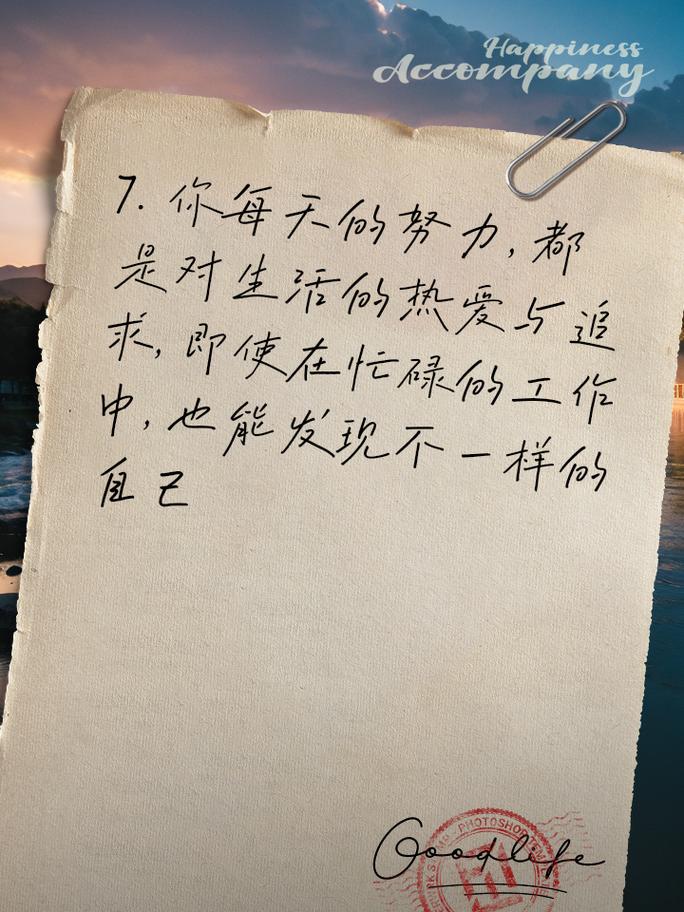 Happiness
Accompany
7. 你每天的努力,都
是对生活的热爱与追
求,即使在忙碌的工作
中,也能发现不一样的
自己
PHOTOSHOP
Goodlife